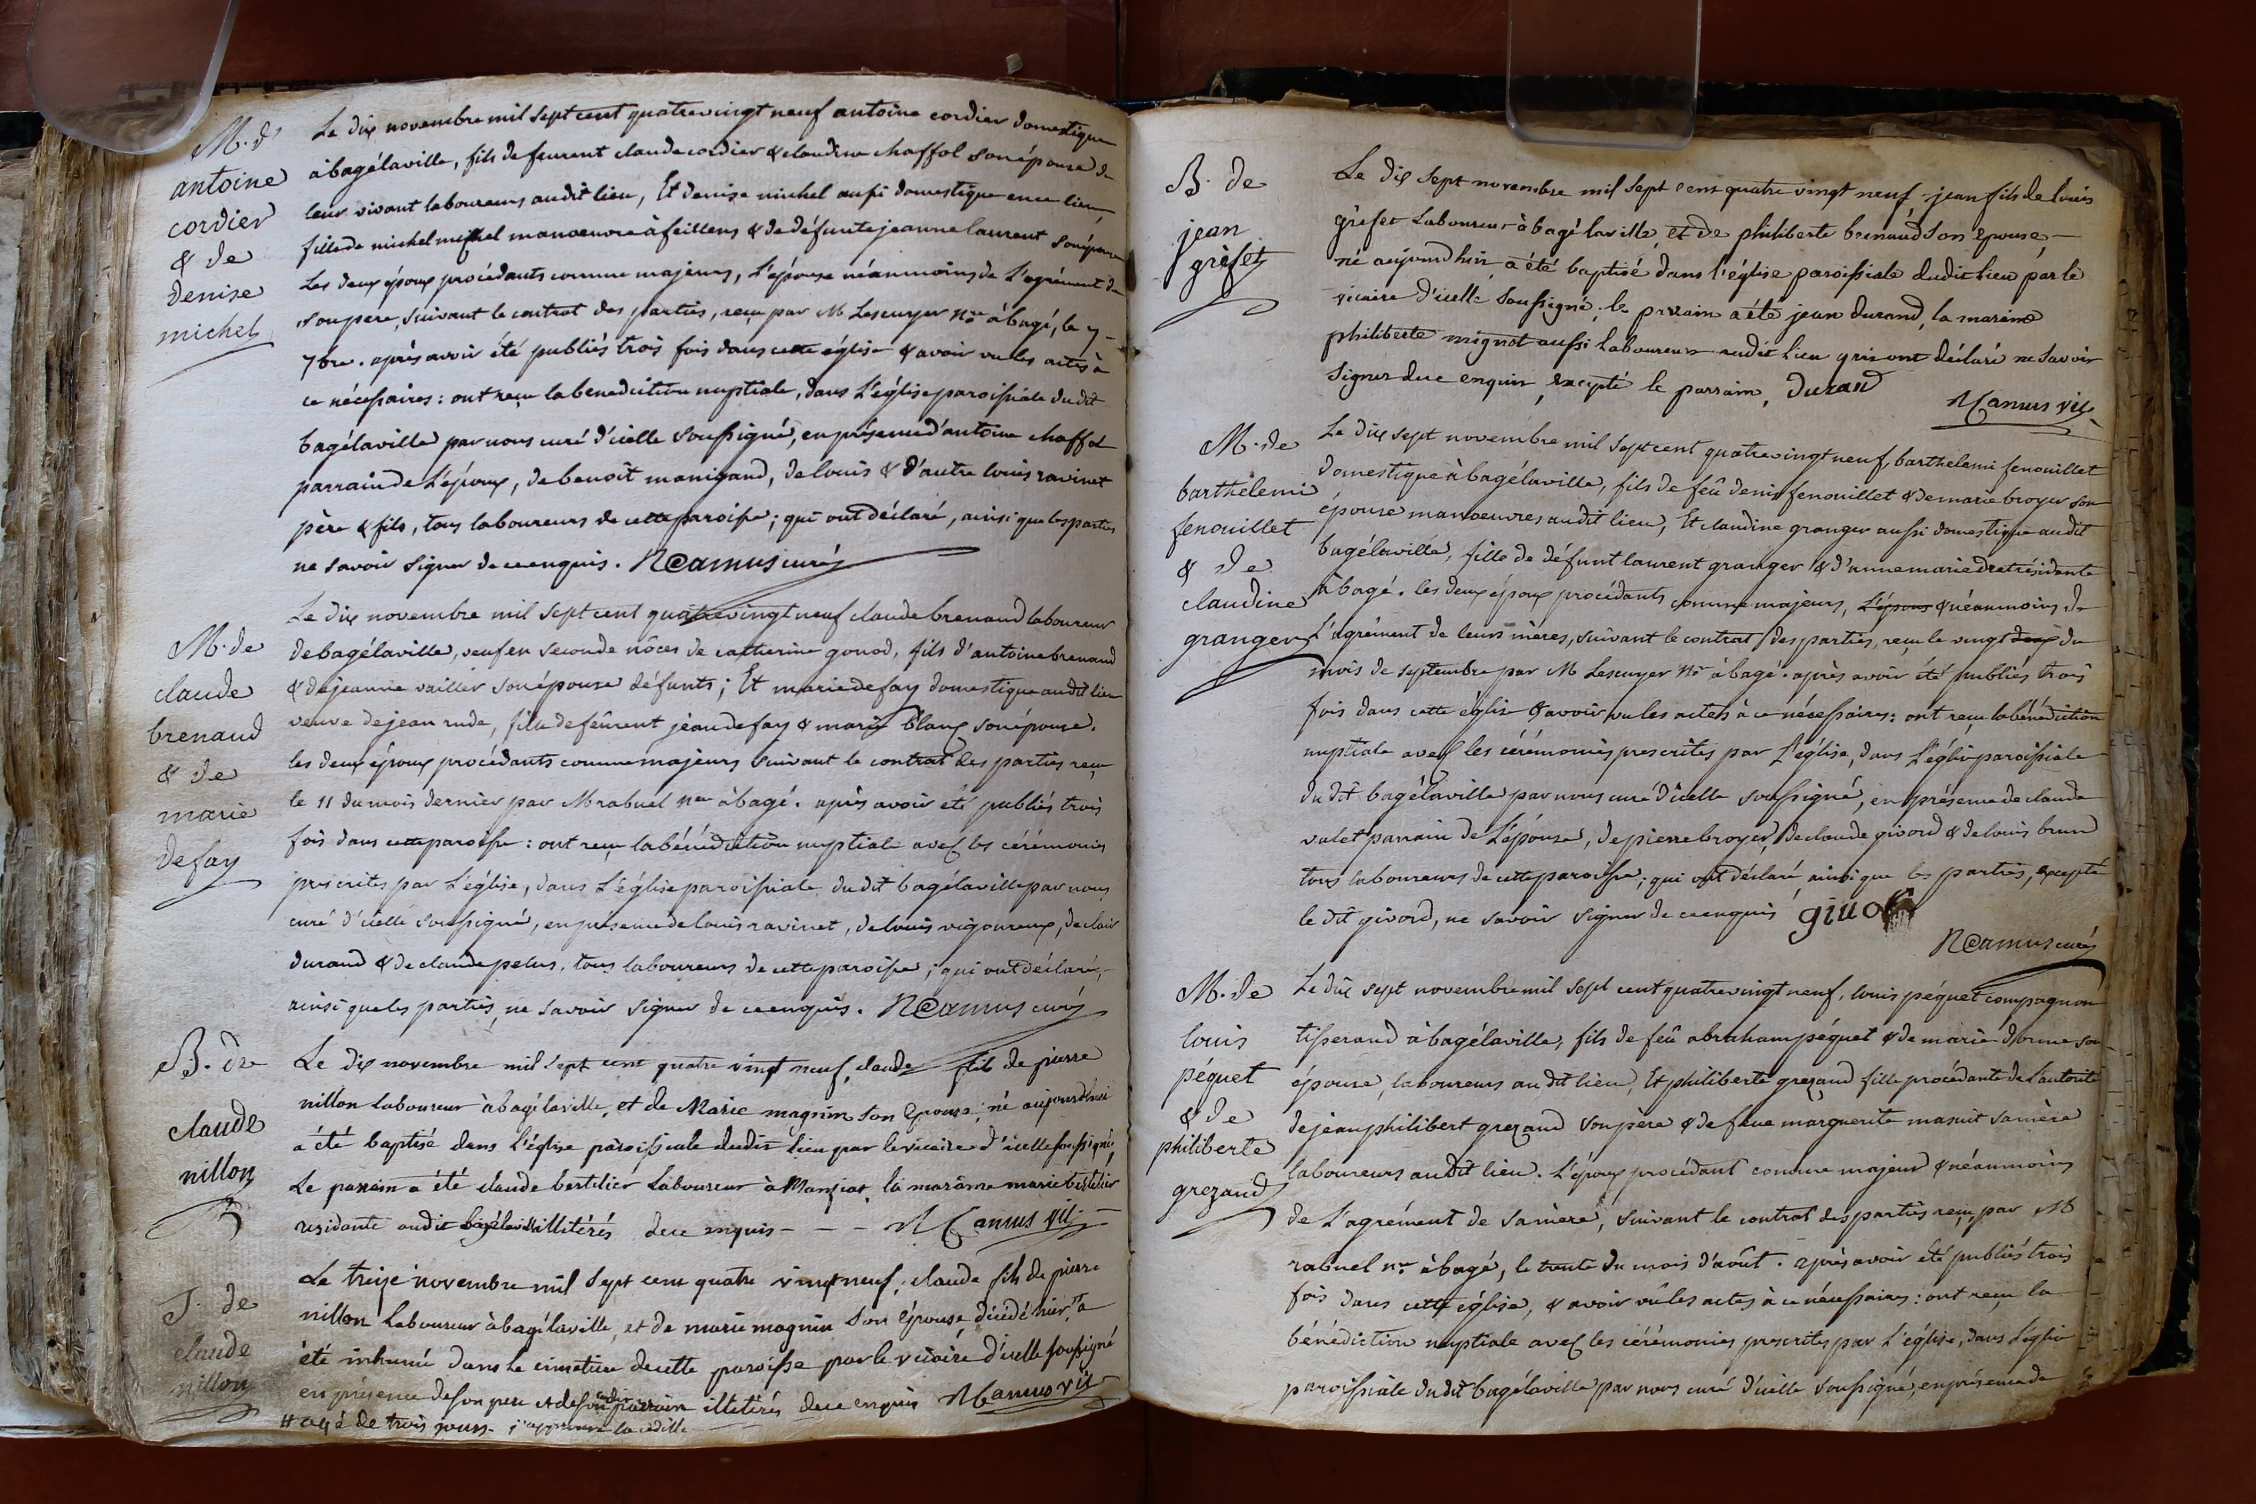 M. d'
antoine
cordier
& de
denise
michel
Le dix novembre mil sept cent quatrevingt neuf antoine cordier domestique
à bagélaville, fils de feurent claude cordier & claudine chaffol son épouse de
leur vivant laboureurs audit lieu, Et denise michel aussi domestique en ce lieu
fille de michel michel manoeuvre à feillens & de défunte jeanne laurent son épouse
Les deux époux procédants comme majeurs, L'épouse néanmoins de L'agrément de
son pere, suivant le contrat des parties, reçu par M Lescuyer nre à bagé, le 7
7bre. après avoir été publiés trois fois dans cette église & avoir vu les actes à
ce nécessaires : ont reçu la benediction nuptiale, dans L'église paroissiale du dit
bagélaville par nous curé d'icelle soussigné, en présence d'antoine chaffol
parrain de L'époux, de benoit manigand, de louis & d'autre louis ravinet
père & fils, tous laboureurs de cette paroisse ; qui ont déclaré, ainsi que les parties
ne savoir signer de ce enquis. N Camus curé
M. de
claude
brenaud
& de
marie
defay
Le dix novembre mil sept cent quatrevingt neuf claude brenaud laboureur
de bagélaville, veuf en seconde nôces de catherine gonod, fils d'antoine brenaud
& de jeanne vailler son épouse défunts ; Et marie defay domestique audit lieu
veuve de jean rude, fille de feûrent jean defay & marie blanx son épouse.
les deux époux procédants comme majeurs suivant le contrat des parties reçu
le 11 du mois dernier par M rabuel nre à bagé. après avoir été publiés trois
fois dans cette paroisse : ont reçu la bénédiction nuptiale avec les cérémonies
prescrites par L'église, dans L'église paroissiale du dit bagélaville par nous
curé d'icelle soussigné, en présence de louis ravinet, de louis vigoureux, de clair
durand & de claude pelus, tous laboureurs de cette paroisse ; qui ont déclaré,
ainsi que les parties, ne savoir signer de ce enquis. N Camus curé
B. de
claude
nillon
Le dix novembre mil sept cent quatre vingt neuf, claude fils de pierre
nillon laboureur à bagélaville, et de Marie magnin son Epouse, né aujourdhui
a été baptisé dans l'église paroissiale dudit lieu par le vicaire d'icelle soussigné,
Le parrain a été claude bertelier Laboureur à Manziat, la maraine marie bertelier
residante audit bagélaville illitérés de ce enquis - - - N Camus vic.
S. de
claude
nillon
Le treize novembre mil sept cent quatre vingt neuf, claude fils de pierre
nillon Laboureur à bagélaville, et de marie magnin son Epouse, décédé hier, # a
été inhumé dans le cimetiere de cette paroisse par le vicaire d'icelle soussigné
en présence de son pere et de son parrain illitérés de ce enquis N Camus vic
# agé de trois jours. j'approuve la cédille
B. de
jean
grèfet
Le dix sept novembre mil sept cent quatre vingt neuf jean fils de louis
grèfet Laboureur à bagélaville, et de philiberte brenaud son epouse,
né aujourdhui, a été baptisé dans l'église paroissiale dudit lieu par le
vicaire d'icelle soussigné, le parrain a été jean durand, la maraine
philiberte mignot aussi laboureurs audit lieu qui ont déclaré ne savoir
signer de ce enquis, excepté le parrain, durand
N Camus vic
M. de
barthelemi
fenouillet
& de
claudine
granger
Le dix sept novembre mil sept cent quatrevingt neuf, barthelemi fenouillet
domestique à bagélaville, fils de feû denis fenouillet & de marie broyer son
épouse manoeuvres audit lieu, Et claudine granger aussi domestique audit
bagélaville, fille de défunt laurent granger & d'anne marie residante
à bagé. les deux époux procédants comme majeurs, L'épouse & néanmoins de
L'agrément de leurs mères, suivant le contrat des parties, reçu le vingt deux du
mois de septembre par M Lescuyer nre à bagé. après avoir été publiés trois
fois dans cette église & avoir vu les actes à ce nécessaires : ont reçu la bénédiction
nuptiale avec les cérémonies prescrites par L'église, dans L'église paroissiale
du dit bagélaville par nous curé d'icelle soussigné, en présence de claude
valet parrain de L'épouse, de pierre broyer, de claude givord & de louis brun
tous laboureurs de cette paroisse ; qui ont déclaré ainsi que les parties, excepté
le dit givord, ne savoir signer de ce enquis
N Camus curé
M. de
louis
péguet
& de
philiberte
grezaud
Le dix sept novembre mil sept cent quatrevingt neuf, louis péguet compagnon
tisserand à bagélaville, fils de feû abraham péguet & de marie dorme son
épouse, laboureurs audit lieu, Et philiberte grezaud fille procédante de L'autorité
de jean philibert grezaud son père & de feue marguerite manuit sa mère
laboureurs audit lieu. L'époux procédant comme majeur & néanmoins
de L'agrément de sa mère, suivant le contrat des parties reçu par M
rabuel nre à bagé, le trente du mois d'août. après avoir été publiés trois
fois dans cette église, & avoir vû les actes à ce nécessaires : ont reçu la
bénédiction nuptiale avec les cérémonies prescrites par L'église, dans L'église
paroissiale du dit bagélaville par nous curé d'icelle soussigné, en présence de